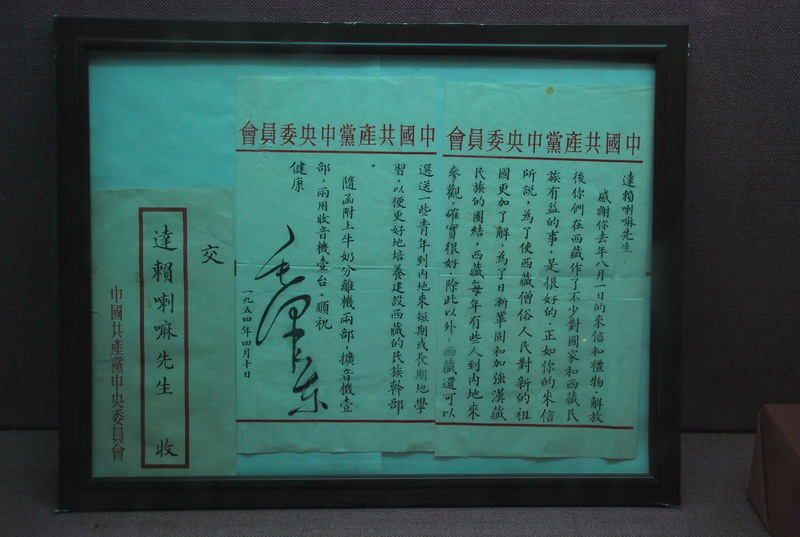 中國共產黨中央委員會
達賴喇嘛先生
感謝你去年八月一日的來信和禮物。解放
後你們在西藏作了不少對國家和西藏民
族有益的事，是很好的。正如你的來信
所說，為了使西藏僧俗人民對新的祖
國更加了解，為了日漸鞏固和加強漢藏
民族的團結，西藏每年有些人到內地來
參觀，確實很好。除此以外，西藏還可以
中國共產黨中央委員會
選送一些青年到內地來短期或長期地學
習，以便更好地培養建設西藏的民族幹部
。
隨函附上牛奶分離機兩部，擴音機壹
部，兩用收音機壹台。順祝
健康
毛澤東
一九五四年四月十日
交
達賴喇嘛先生 收
中國共產黨中央委員會